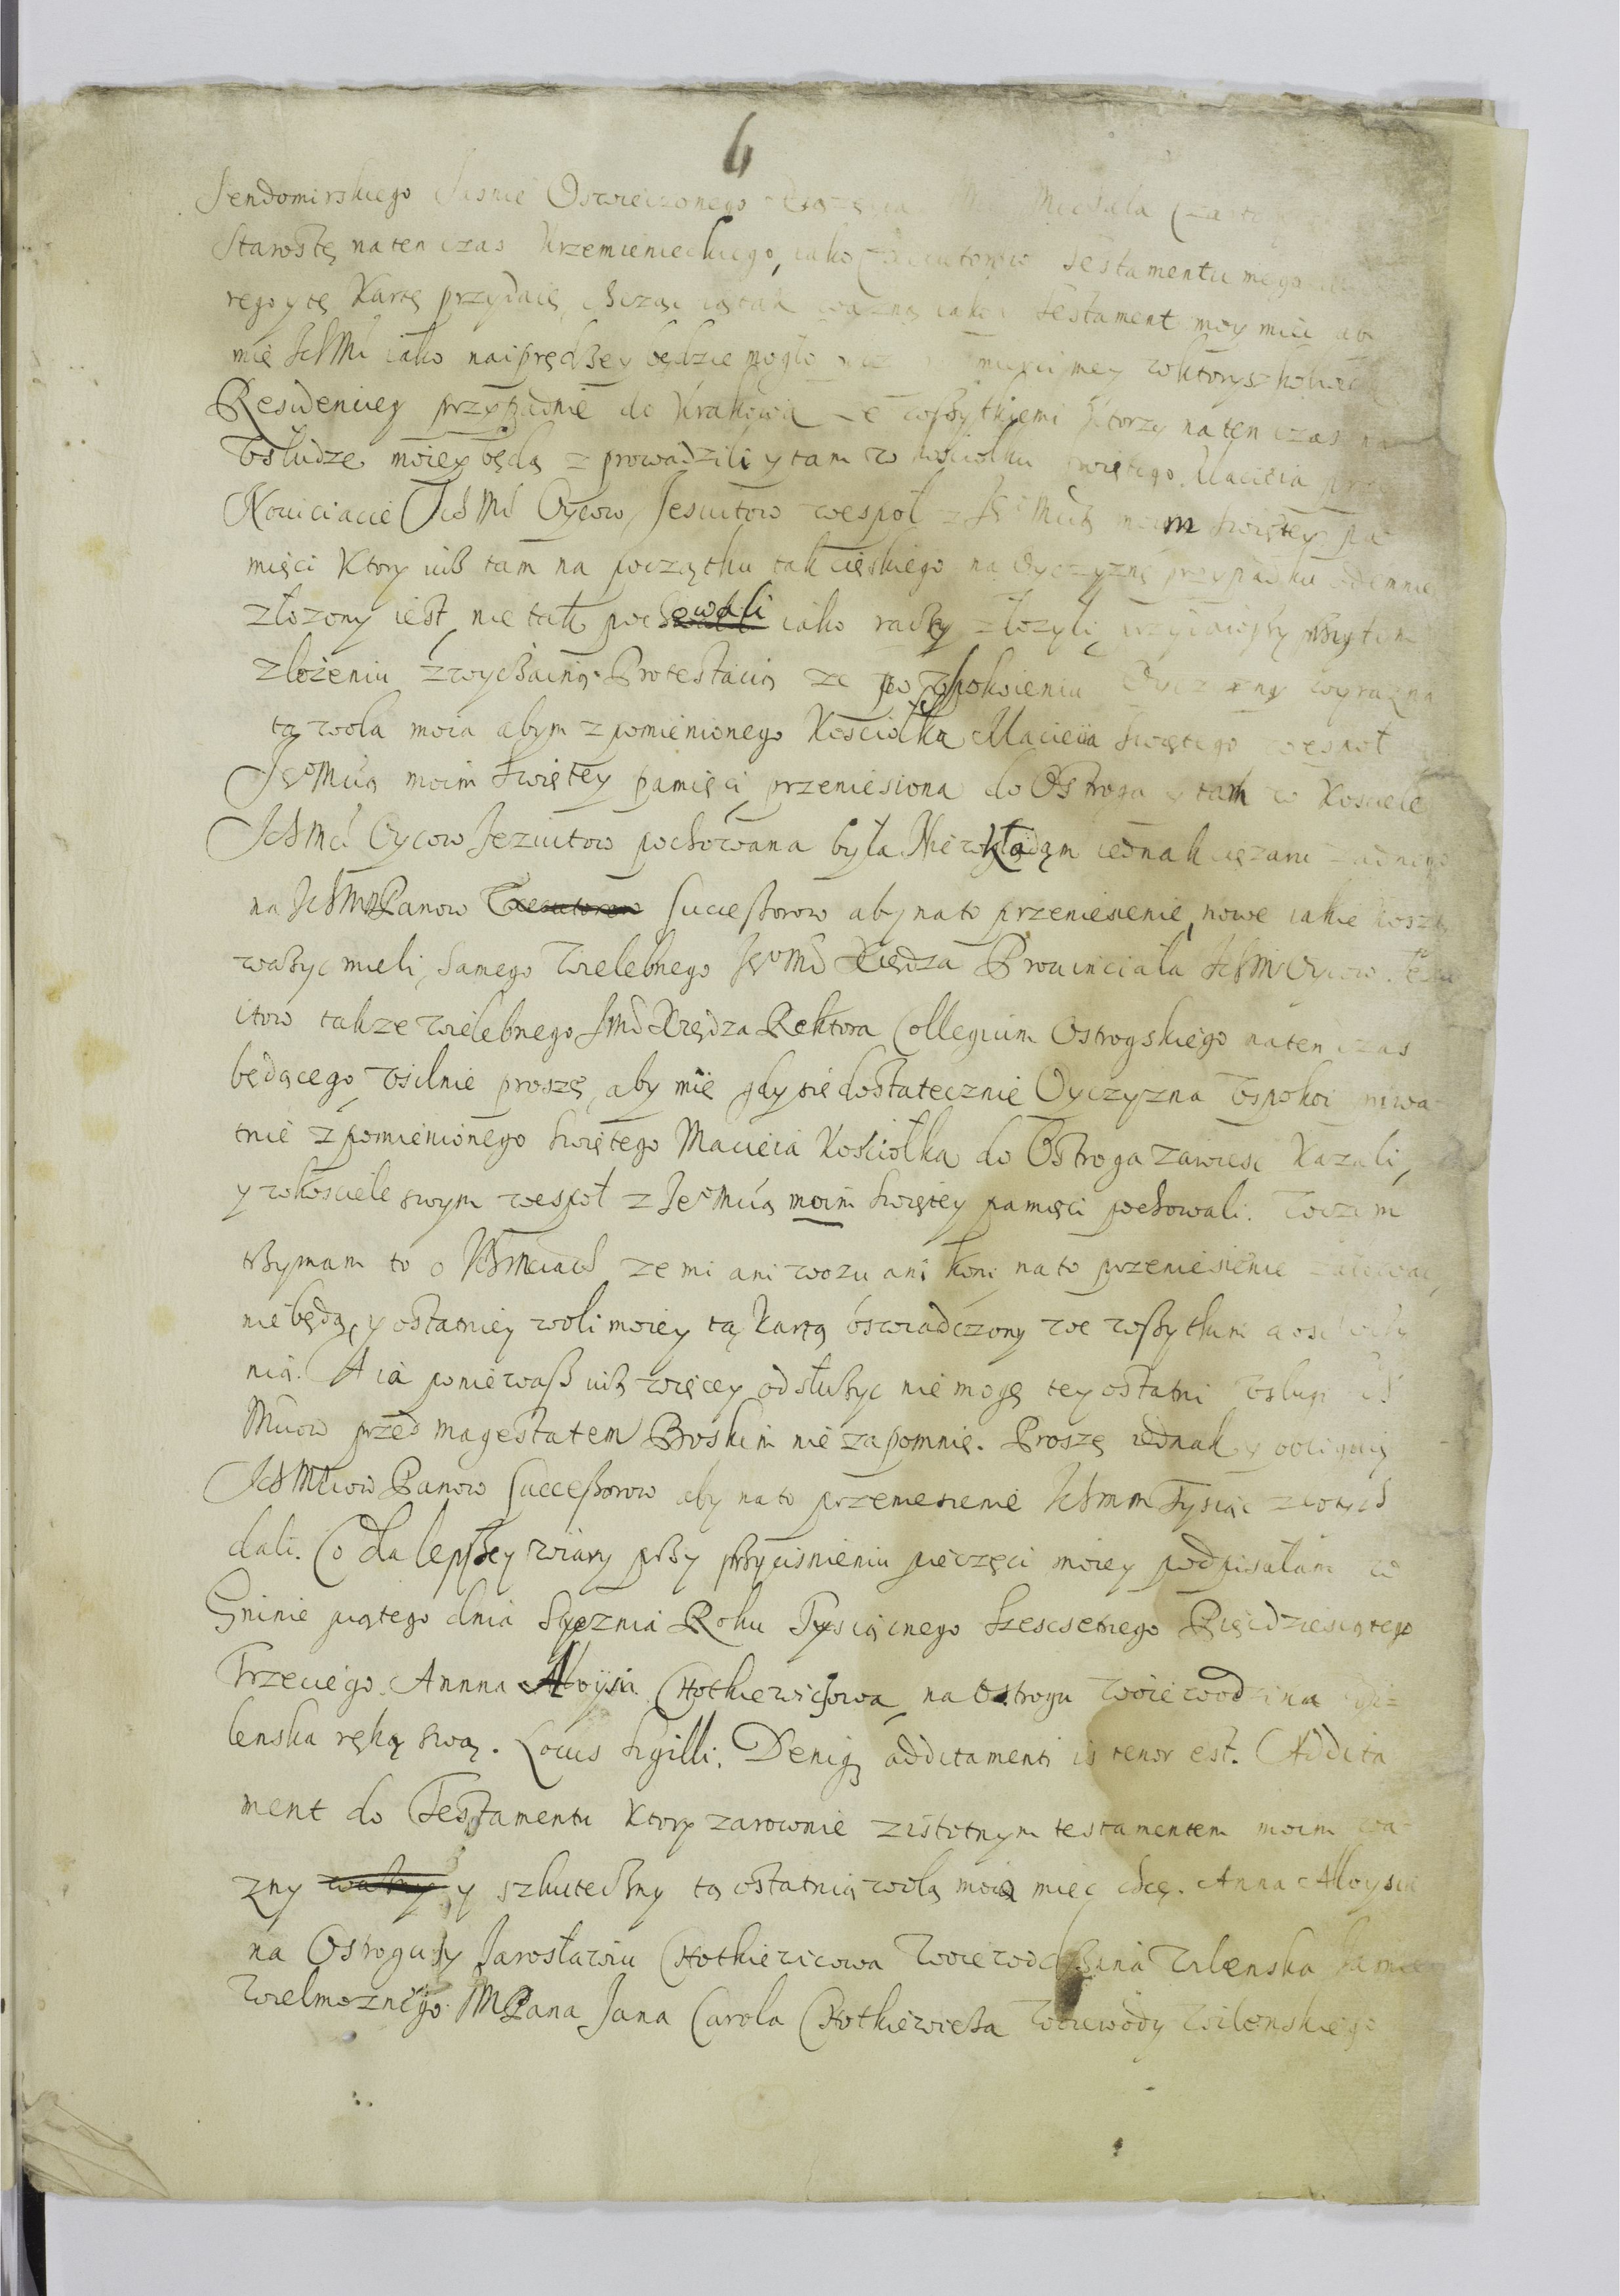 6
Sendomirskiego Jasnie Oswieczonego Michala
Starostę na ten czas Krzemienieckiego, iako Executorow Testamentu mego
rego y tę Kartę przydaię, chcząc ią tak wazną iako Testament moy miec ab
mię IchMć iako naipręđßey będzie mogło smierci mey wktorysz kolwiek
Residencięy przypadnie do Krakowa ze wssytkiemi ktorzy na ten czas na
Vsłudze moiey będą zprowadzili y tam w kosciołku swiętego Macieia przy
Nouiciacie IchMć Oycow Jesuitow wespoł z JeoMćią moim swiętey pa
mięci Ktory iuß tam na początku tak cięskiego na Oyczyznę przypadku odemnie
złozony iest, nie tak pochowali iako raczey złozyli uczyniwßy przytem
złożeniu zwyczainą Protestacią ze po vspokoieniu Oyczyzny wyrazna
ta wola moia abym zpomienionego Kosciołka Macieia swiętego wespoł
JeoMćią moim swiętey pamięci przeniesiona do Ostroga y tam w Kosciele
IchMci Oycow Jezuitow pochowana była. Nie wkładąm iednak cięzaru zadnego
na IchMM Panow Executorow Successorow aby na to przeniesienie, nowe iakie koszty
wazyc mieli, samego Wielebnego JeoMć Xiędza Prouinciała IchM Oycow Jesu
itow takze Wielebnego JMć Xiędza Rektora Collegium Ostrogskiego naten czas
będącego, vsilnie proszę, aby mie gdy sie dostatecznie Oyczyzna vspokoi priwa
tnie zpomienionego swiętego Macieia Kosciołka do Ostroga zawiesc kazali,
y wkosciele swym wespoł z JeoMćią moim swiętey pamięci pochowali. Wczym
trzymam to o IchMciach ze mi ani wozu ani koni na to przeniesienie załowac
nie będą, y ostatniey woli moiey tą kartą oswiadczony we wssytkim
nią. A ia poniewaß iuß więcey odsłuzyc nie mogę tey ostatni vsługi Ich
Mciow przed Magestatem Boskim nie zapomnię. Proszę iednak y obliguię
IchMciow Panow Successorow aby na to przeniesienie IchMM Tysiąc złotych
dali. Co dla lepssey wiary przy przycisnieniu pieczęci moiey podpisałam w
Gninie piątego dnia Stycznia Roku Tysiącnego Szescsetnego Pięćdziesiątego
Trzeciego. Annna Aloysia Chotkiewiczowa, na Ostrogu Woiewodzina Wi=
lenska ręką swą. Locus Sigilli. Deniq additamenti is tenor est. Addita
ment do Testamentu Ktory zarownie zistotnym testamentem moim wa
zny wazny y skuteczny tą ostatnią wolą moią mięc chcę. Anna Aloysia
na Ostrogu y Jarosławiu Chotkiewicowa Woiewodzina Wilenska
Wielmoznego MPana Jana Carola Chotkiewicza Woiewody Wilenskiego